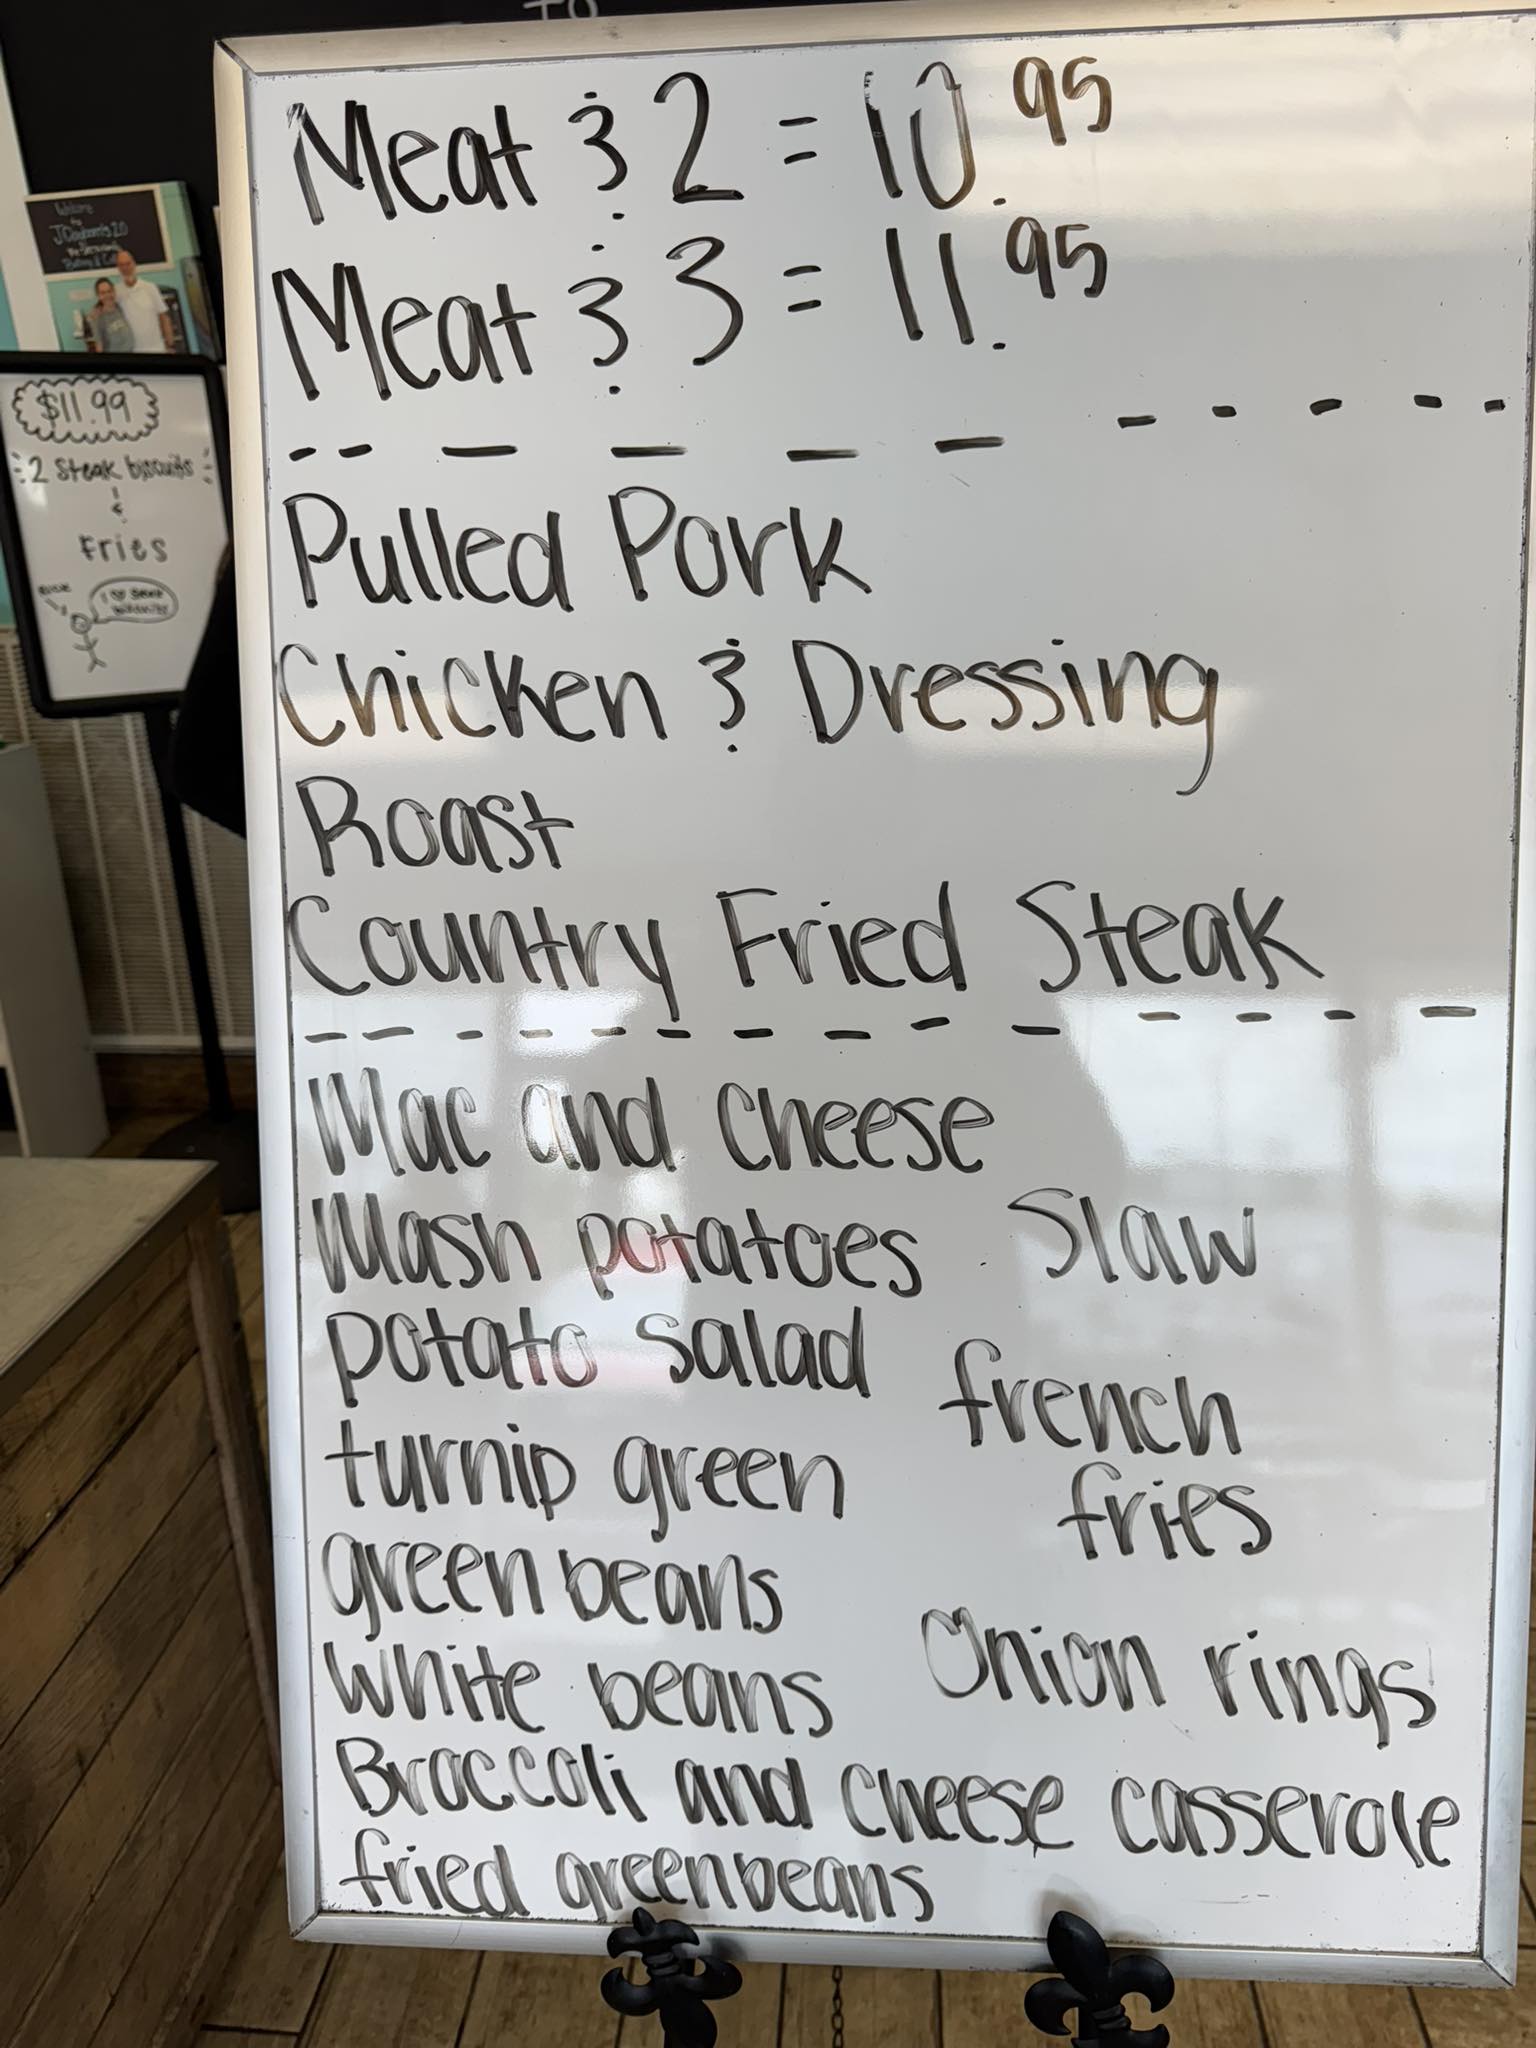 TO
Meat & 2 = 10.95
Meat & 3 = 11.95
Pulled Pork
Chicken & Dressing
Roast
Country Fried Steak
Mac and cheese
Mash potatoes
Slaw
potato salad
french
fries
turnip green
green beans
White beans
Onion rings
Broccoli and cheese casserole
fried greenbeans
Welcome
to
$11.99
2 Steak biscuits
&
Fries